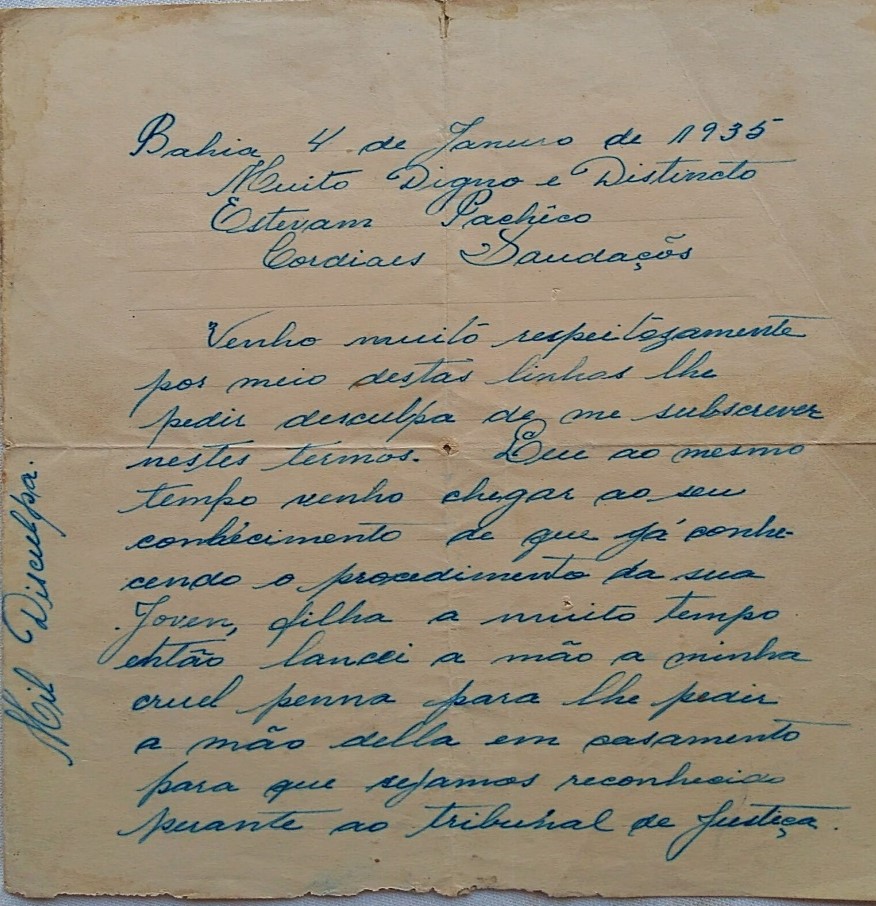 Bahia 4 de Janeiro de 1935
Muito Digno e Distincto
Estevam Pachêco
Cordiaes Saudaçõs
Venho muito respeitozamente
por meio destas linhas lhe
pedir desculpa de me subscrever
nestes termos. Que ao mesmo
tempo venho chegar ao seu
conhécimento de que já conhe-
cendo o procedimento da sua
Joven, filha a muito tempo
então lancei a mão a minha
cruel penna para lhe pedir
a mão della em casamento
para que sejamos reconhecido
perante ao tribunal de Justiça.
Mil Disculpa.